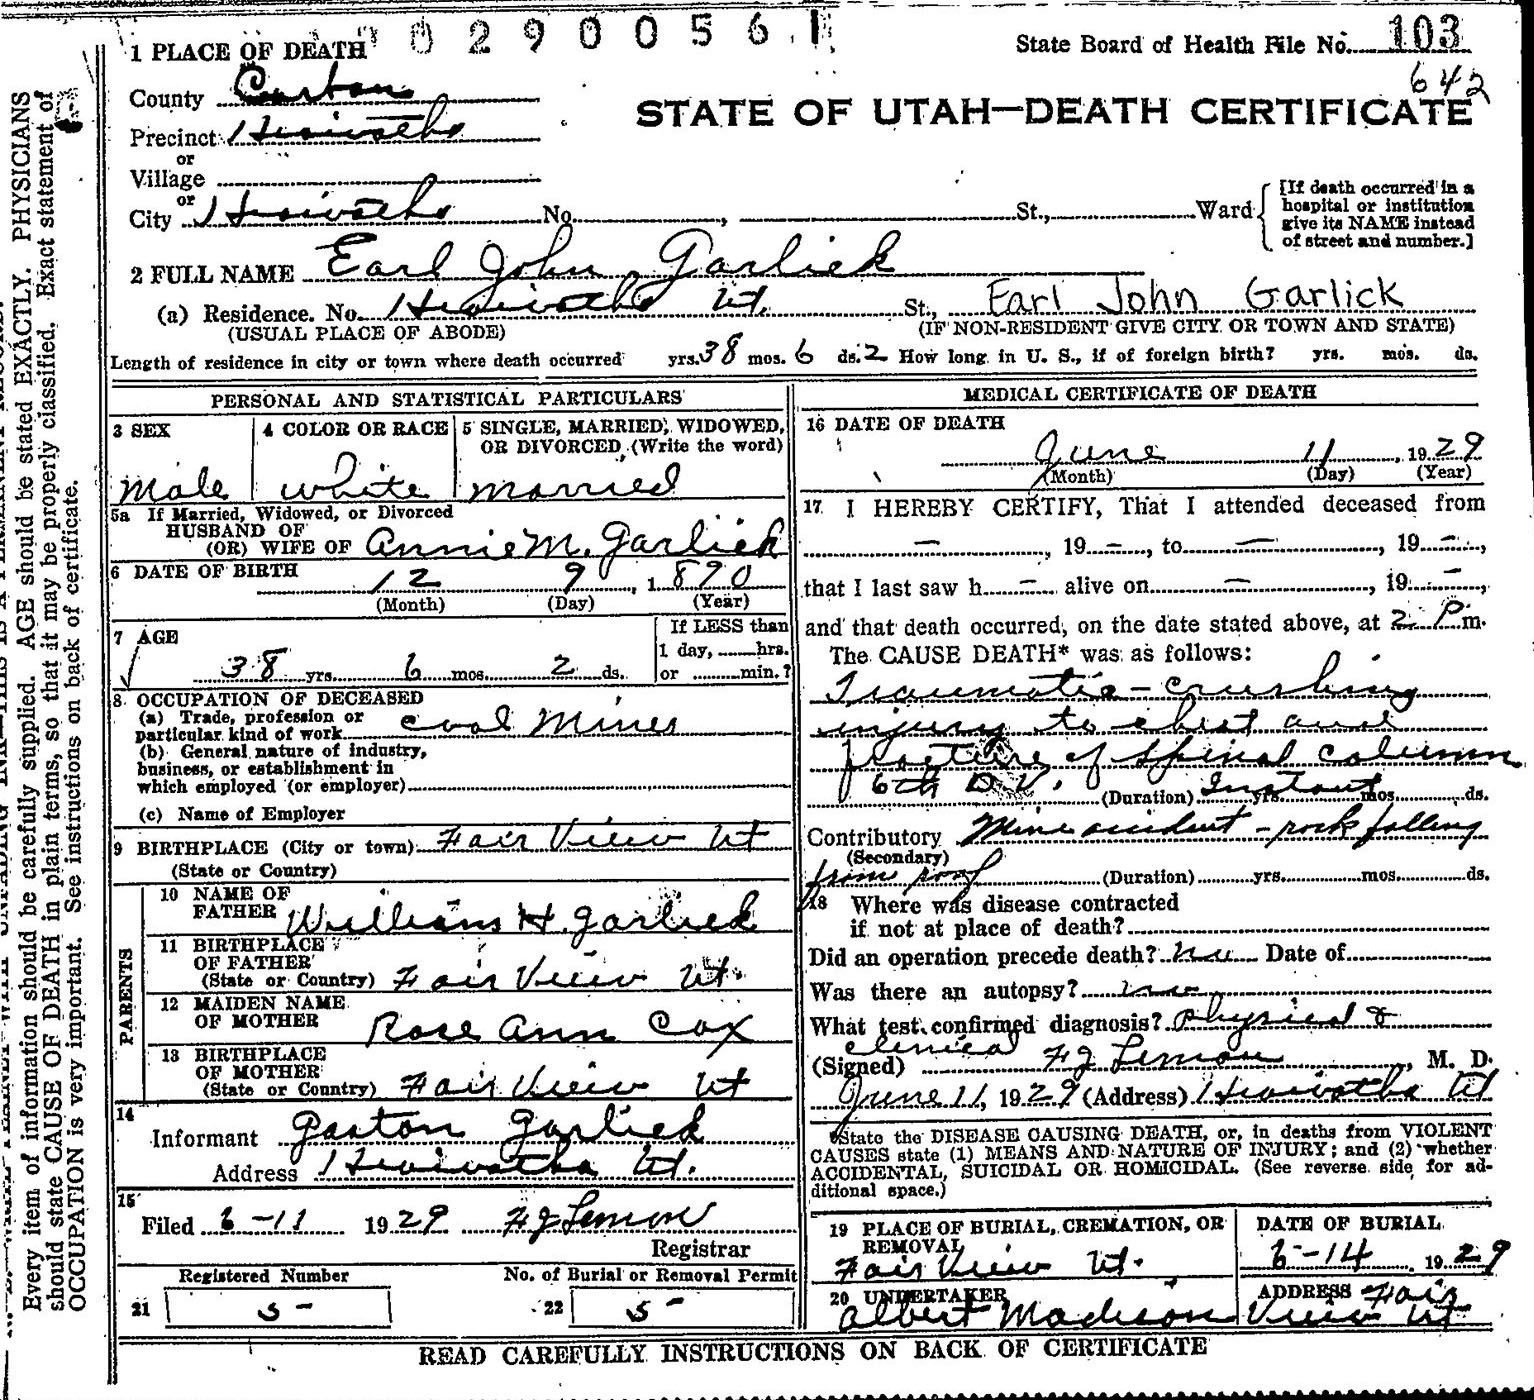 02900561
1 PLACE OF DEATH
State Board of Health File No. 103
642
County Carbon
STATE OF UTAH—DEATH CERTIFICATE
Precinct Hiawatha
or
Village
or
City Hiawatha No. , St., Ward
[If death occurred in a hospital or institution give its NAME instead of street and number.]
2 FULL NAME Earl John Garlick
(a) Residence. No. Hiawatha Ut. St., Earl John Garlick
(USUAL PLACE OF ABODE) (IF NON-RESIDENT GIVE CITY OR TOWN AND STATE)
Length of residence in city or town where death occurred yrs. 38 mos. 6 ds. 2 How long in U. S., if of foreign birth? yrs. mos. ds.
PERSONAL AND STATISTICAL PARTICULARS
3 SEX 4 COLOR OR RACE 5 SINGLE, MARRIED, WIDOWED,
OR DIVORCED (Write the word)
Male white married
5a If Married, Widowed, or Divorced
HUSBAND OF
(OR) WIFE OF Annie M. Garlick
6 DATE OF BIRTH 12 9, 1890
(Month) (Day) (Year)
7 AGE If LESS than
1 day, hrs.
38 yrs. 6 mos. 2 ds. or min.?
8 OCCUPATION OF DECEASED
(a) Trade, profession or
particular kind of work coal Miner
(b) General nature of industry,
business, or establishment in
which employed (or employer)
(c) Name of Employer
9 BIRTHPLACE (City or town) Fair View Ut
(State or Country)
PARENTS
10 NAME OF
FATHER William H. Garlick
11 BIRTHPLACE
OF FATHER
(State or Country) Fair View Ut.
12 MAIDEN NAME
OF MOTHER Rose Ann Cox
13 BIRTHPLACE
OF MOTHER
(State or Country) Fair View Ut
14
Informant Gaston Garlick
Address Hiawatha Ut.
15
Filed 6-11 1929 F J Lemon
Registrar
Registered Number No. of Burial or Removal Permit
21 5- 22 5-
MEDICAL CERTIFICATE OF DEATH
16 DATE OF DEATH
June 11, 1929
(Month) (Day) (Year)
17 I HEREBY CERTIFY, That I attended deceased from
—, 19 —, to —, 19 —,
that I last saw h — alive on —, 19 —,
and that death occurred, on the date stated above, at 2 P m.
The CAUSE DEATH* was as follows:
Traumatic - crushing
injury to chest and
fracture of spinal column
6th D.V. (Duration) Instant yrs. mos. ds.
Contributory Mine accident - rock falling
(Secondary)
from roof (Duration) yrs. mos. ds.
18 Where was disease contracted
if not at place of death?
Did an operation precede death? no Date of
Was there an autopsy? no
What test confirmed diagnosis? Physical &
clinical
(Signed) F J Lemon, M. D.
June 11, 1929 (Address) Hiawatha Ut
*State the DISEASE CAUSING DEATH, or, in deaths from VIOLENT
CAUSES state (1) MEANS AND NATURE OF INJURY; and (2) whether
ACCIDENTAL, SUICIDAL OR HOMICIDAL. (See reverse side for ad-
ditional space.)
19 PLACE OF BURIAL, CREMATION, OR DATE OF BURIAL
REMOVAL
Fair View Ut. 6-14, 1929
20 UNDERTAKER ADDRESS Fair
Albert Madison View Ut
READ CAREFULLY INSTRUCTIONS ON BACK OF CERTIFICATE
Every item of information should be carefully supplied. AGE should be stated EXACTLY. PHYSICIANS
should state CAUSE OF DEATH in plain terms, so that it may be properly classified. Exact statement of
OCCUPATION is very important. See instructions on back of certificate.